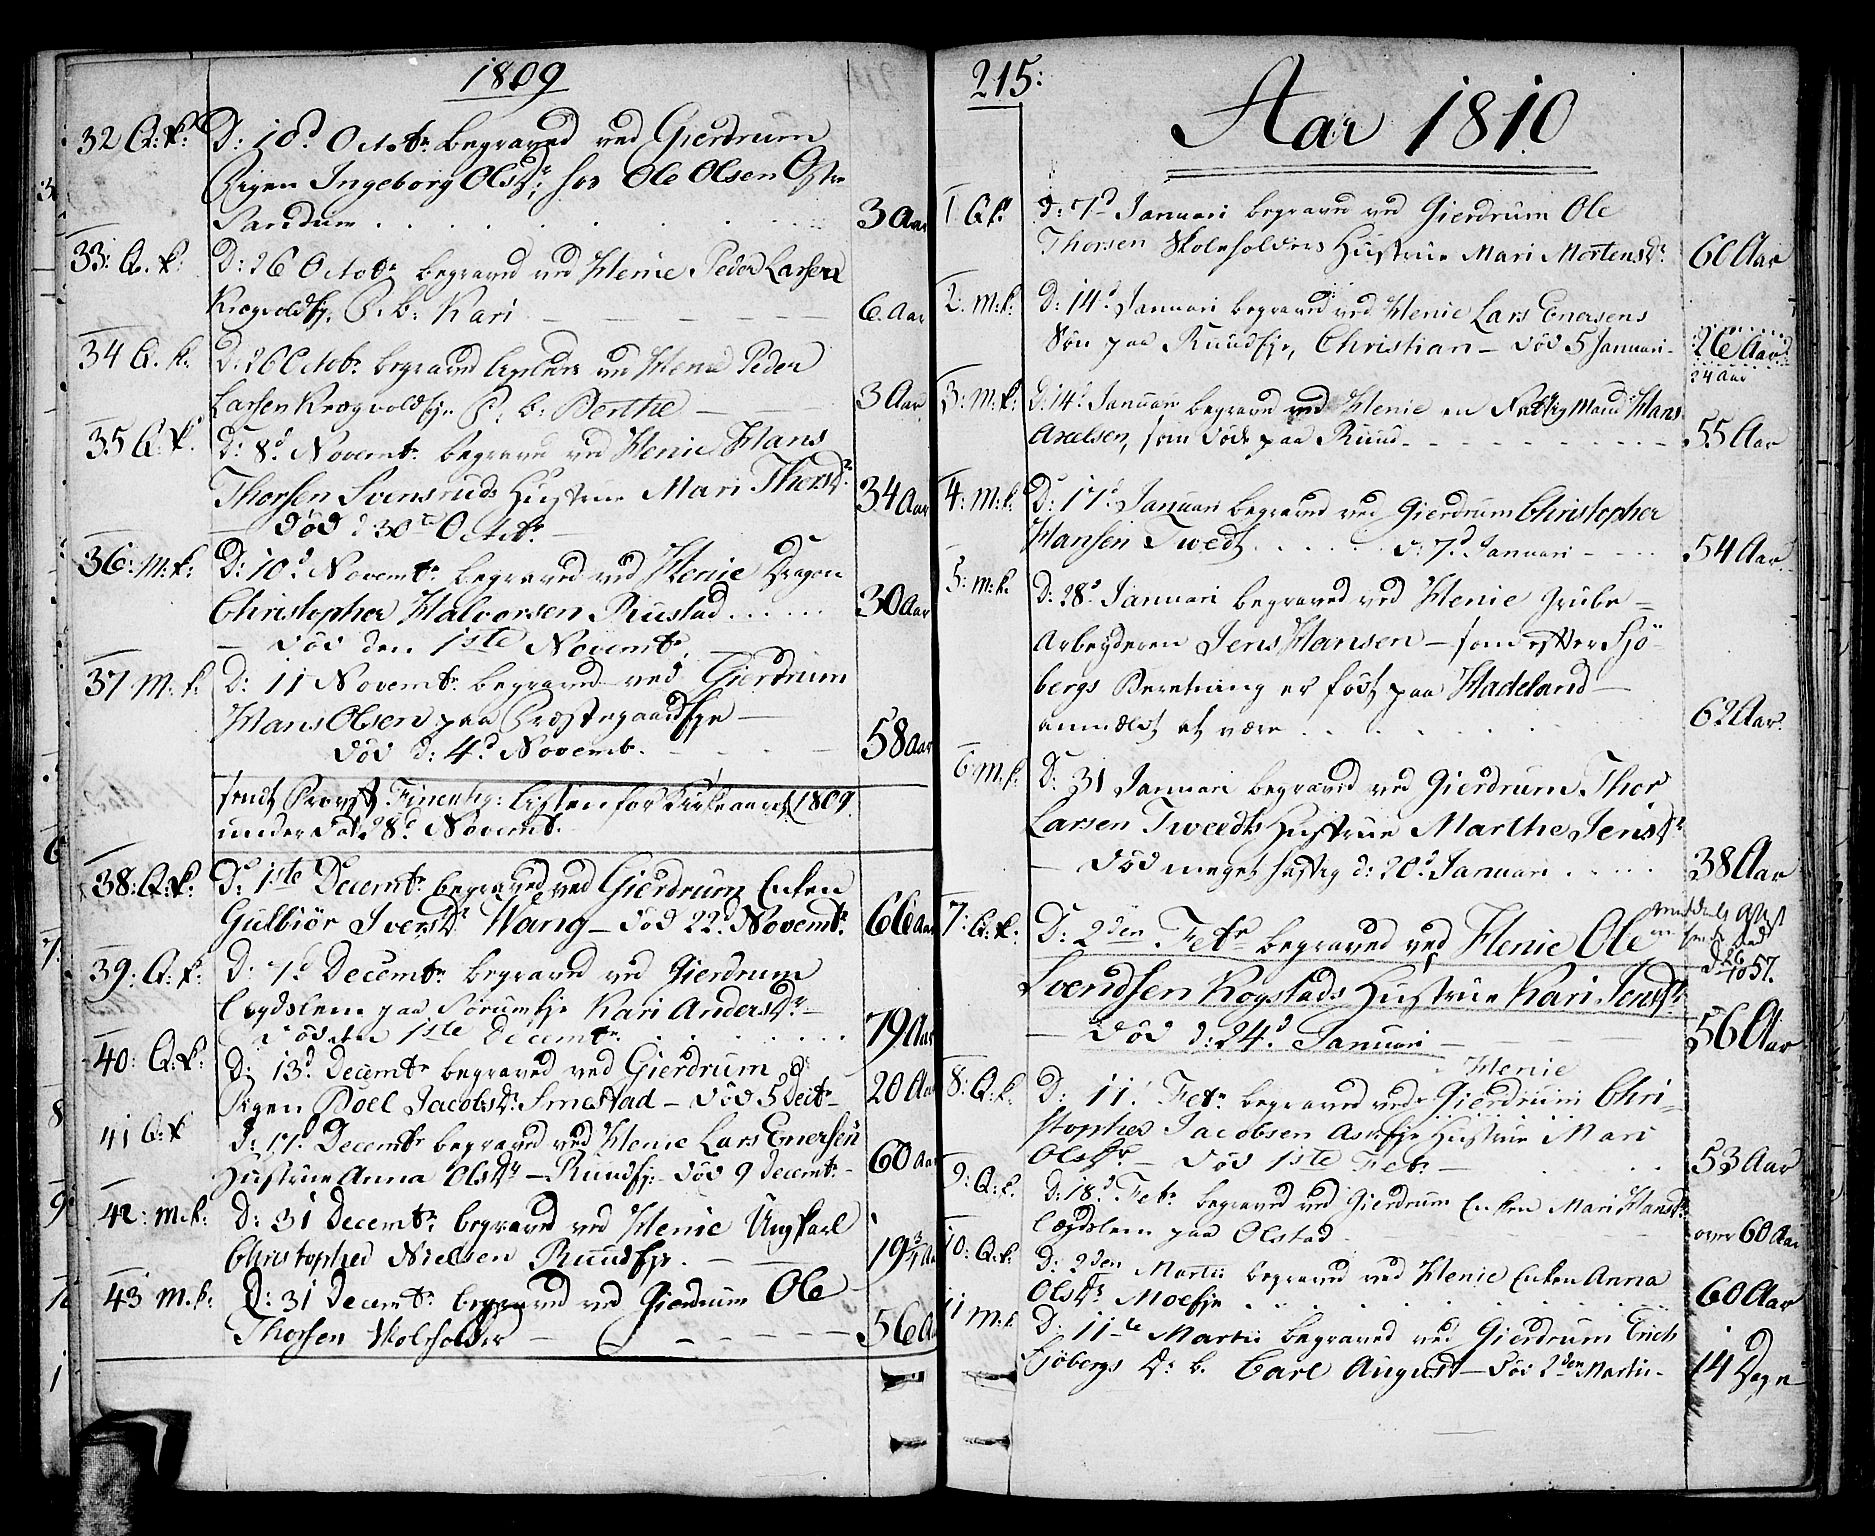 1809
32 Q: k: D: 18d Octobr begraved ved Gierdrum
Pigen Ingeborg Olsdr: hos Ole Olsen Østre
Sandum . . . . . . 3 Aar
33: Q. k: D: 26 Octobr begraved ved Henie Peder Larsen
Krogvoldsej. P. b: Kari — — — 6. Aar
34 Q. k: D: 26 Octobr: begraved ved Henie Peder
Larsen Krogvoldsej. P. b: Berthe — 3 Aar
35 Q. k. D: 8d Novembr begraved ved Henie Hans
Thorsen Svensruds Hustrue Mari Thorsdr 34 Aar
— død d: 30te Octobr —
36: M: k: D: 10d Novembr begraved ved Henie Dragon
Christopher Halvorsen Rustad . . . . . 30 Aar
— død den 1ste Novembr. —
37 M. k: D: 11 Novembr begraved ved Gierdrum
Hans Olsen paa Præstegaardseje —
død d: 4d Novemb. — 58 Aar
sendt Provst Finenhg: Listen for Kirkeaaret 1809
under Dato 8d Novemb.
38: Q: k: D: 1ste Decembr begraved ved Gierdrum Enken
Gulbiör Iversdr Wang — død 22d Novembr. 66 Aar
39: Q: k: D: 7d Decembr begraved ved Gierdrum
Legdslem paa Sörumseje Kari Andersdr —
død den 1ste Decembr. . . . . 79 Aar
40: Q: k: D: 13d Decembr begraved ved Gierdrum
Pigen Boel Jacobsdr. Smestad — død 5 Decbr — 20 Aar
41 Q: k D: 17d Decembr begraved ved Henie Lars Enersen
Hustrue Anna Olsdr — Ruudsej: død 9 Decembr — 60 Aar
42: M: k: D: 31 Decembr: begraved ved Henie Ungkarl
Christopher Nielsen Ruudseje. — — 19 3/4 Aar
43 M. k: D: 31 Decembr begraved ved Gierdrum Ole
Thorsen Skoleholder — — — 56 Aar
215:
Aar 1810
1. Q k: D: 7d Januari begraved ved Gierdrum Ole
Thorsen Skoleholders Hustrue Mari Mortensdr. 60 Aar
2: M: k: D: 14d Januari begraved ved Henie Lars Enersens
Søn paa Ruudseje, Christian — død 5 Januari — 26 Aar
24 Aar
3: M: k: D: 14d Januari begraved ved Henie en Fattig Mand Hans
Axelsen, som døde paa Ruud — — — 55 Aar
4: M: k: D: 17d Januari begraved ved Gierdrum Christopher
Hansen Twedt . . . . . d: 7d Januari — — 54 Aar.
5: M: k. D: 28d Januari begraved ved Henie Grube=
Arbeyderen Jens Hansen — som efter Sjö-
bergs Beretning er født paa Hadeland —
anmeldt at være . . . . . . 62 Aar.
6 M. k: D: 31 Januari begraved ved Gierdrum Thor
Larsen Tweedts Hustrue Marthe Jensdr
— død meget hastig d: 20d Januari . . . . . 38 Aar
7: Q: k: D: 2den Febr begraved ved Henie Ole
Svendsen Kogstads Hustrue Kari Jensdr
— død d: 24d Januari — — — 56 Aar
1857.
Henie
8: Q: k. D: 11. Febr. begraved ved Gierdrum Chri-
stopher Jacobsen Askseje Hustrue Mari
Olsdr — død 1ste Feb. — . . 53 Aar
9: Q: k. D: 18d Febr begraved ved Gierdrum Enken Mari Hansdr
Legdslem paa Olstad — — over 60 Aar
10: Q: k: D: 2den Martii begraved ved Henie Enken Anna
Olsdr Moeseje . . . . . . 60 Aar
11 M: k. D: 11te Martii begraved ved Gierdrum Erich
Sjöbergs D: b. Carl August — død 2den Martii — 14 Dage